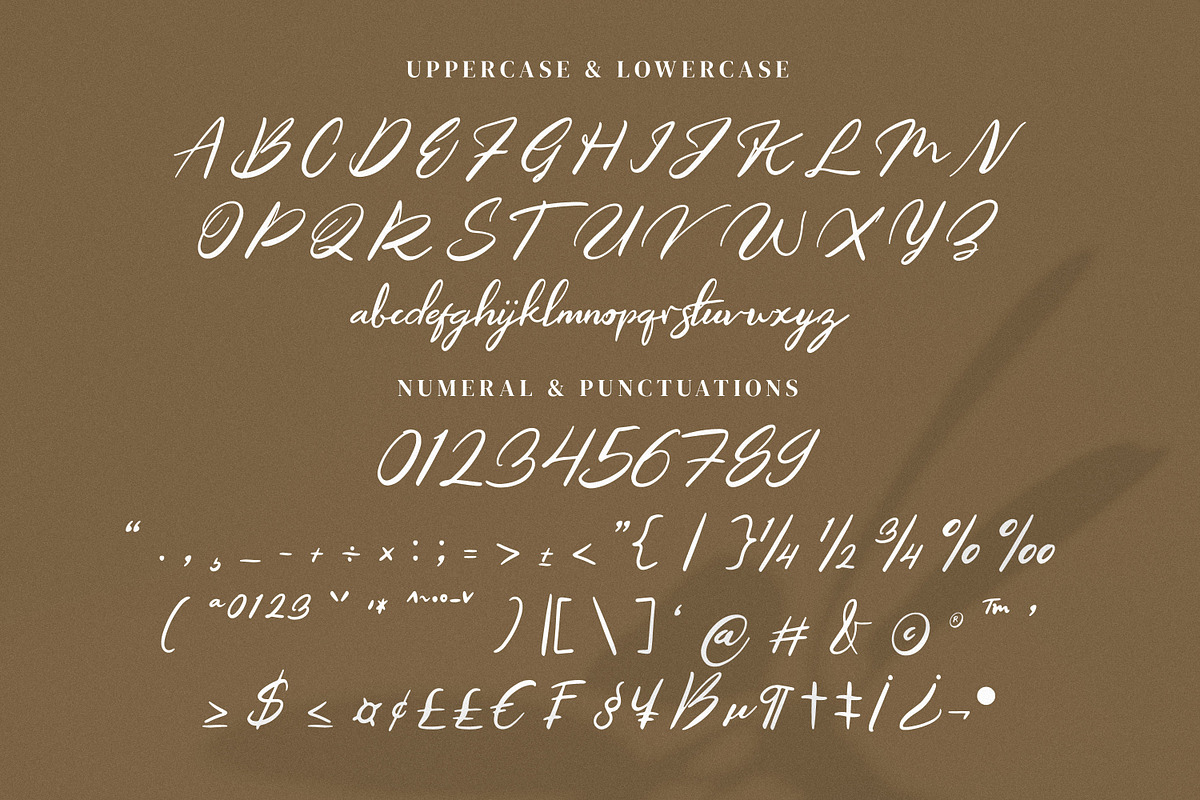 UPPERCASE & LOWERCASE
A B C D E F G H I J K L M N
O P Q R S T U V W X Y Z
abcdefghijklmnopqrstuvwxyz
NUMERAL & PUNCTUATIONS
0123456789
“ . , ¸ _ - + ÷ × : ; = > ± < ” { | } ¼ ½ ¾ % ‰
( ª 0 1 2 3 ) | [ \ ] ‘ @ # & © ® ™ ’
≥ $ ≤ ¤ ¢ £ ₤ € ₣ § ¥ ß µ ¶ † ‡ ¡ ¿ ¬ •